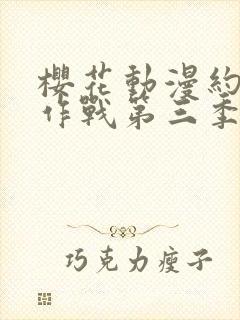 櫻花動漫約
作戰第三季
巧克力瘦子